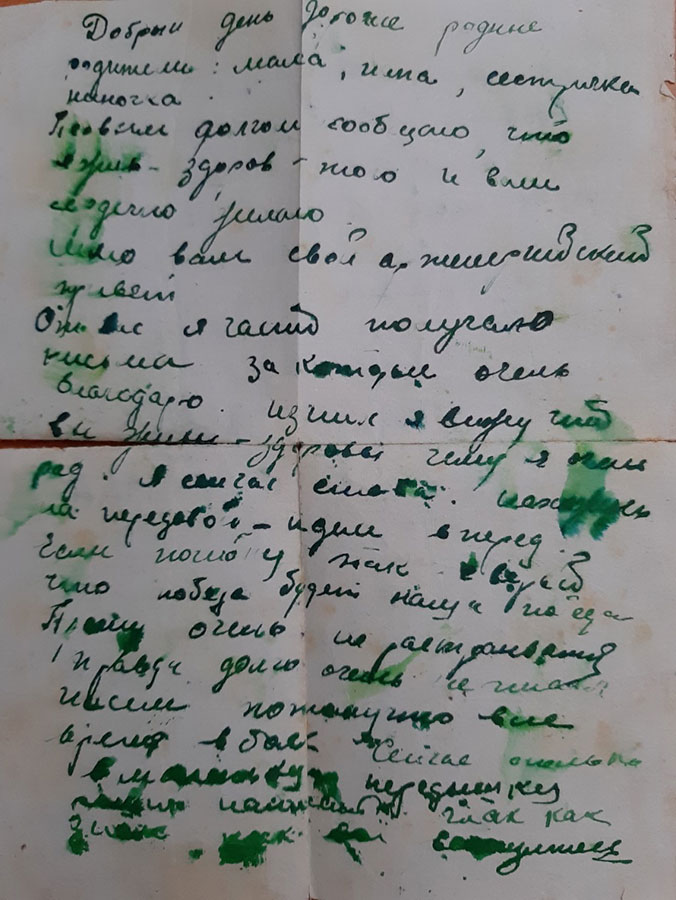 Добрый день дорогие родные
родители: мама, папа, сестричка
ниночка.
Первым долгом сообщаю, что
я жив-здоров - того и вам
желаю
вам свой артиллерийский
привет
От вас я часто получаю
письма за которые очень
благодарю. из них я вижу что
вы живы-здоровы чему я очень
рад. я сейчас опять нахожусь
на передовой - идем вперед.
Если погибну так
что победа будет наша победа
Прошу очень не расстраиваться
правда долго очень не писал
писем потому что все
время в боях. Сейчас
в маленькую передышку
так как
знаю как